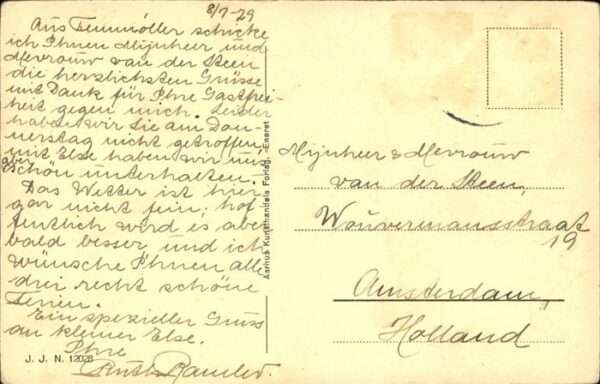 8/7-29
Aus Femmöller schicke
ich Ihnen Mijnheer und
Mevrouw van der Steen
die herzlichsten Grüsse
mit Dank für Ihre Gastfrei-
heit gegen mich. Leider
haben wir Sie am Don-
nerstag nicht getroffen
mit Else haben wir uns
aber schön unterhalten.
Das Wetter ist hier
gar nicht fein; hof
fentlich wird es aber
bald besser und ich
wünsche Ihnen alle
drei recht schöne
Ferien.
Ein spezieller Gruss
an kleiner Else.
Ihre
Ruth
J. J. N. 12026
Aarhus Kunsthandels Forlag, -Eneret
Mijnheer & Mevrouw
van der Steen,
Wouvermansstraat
19
Amsterdam,
Holland